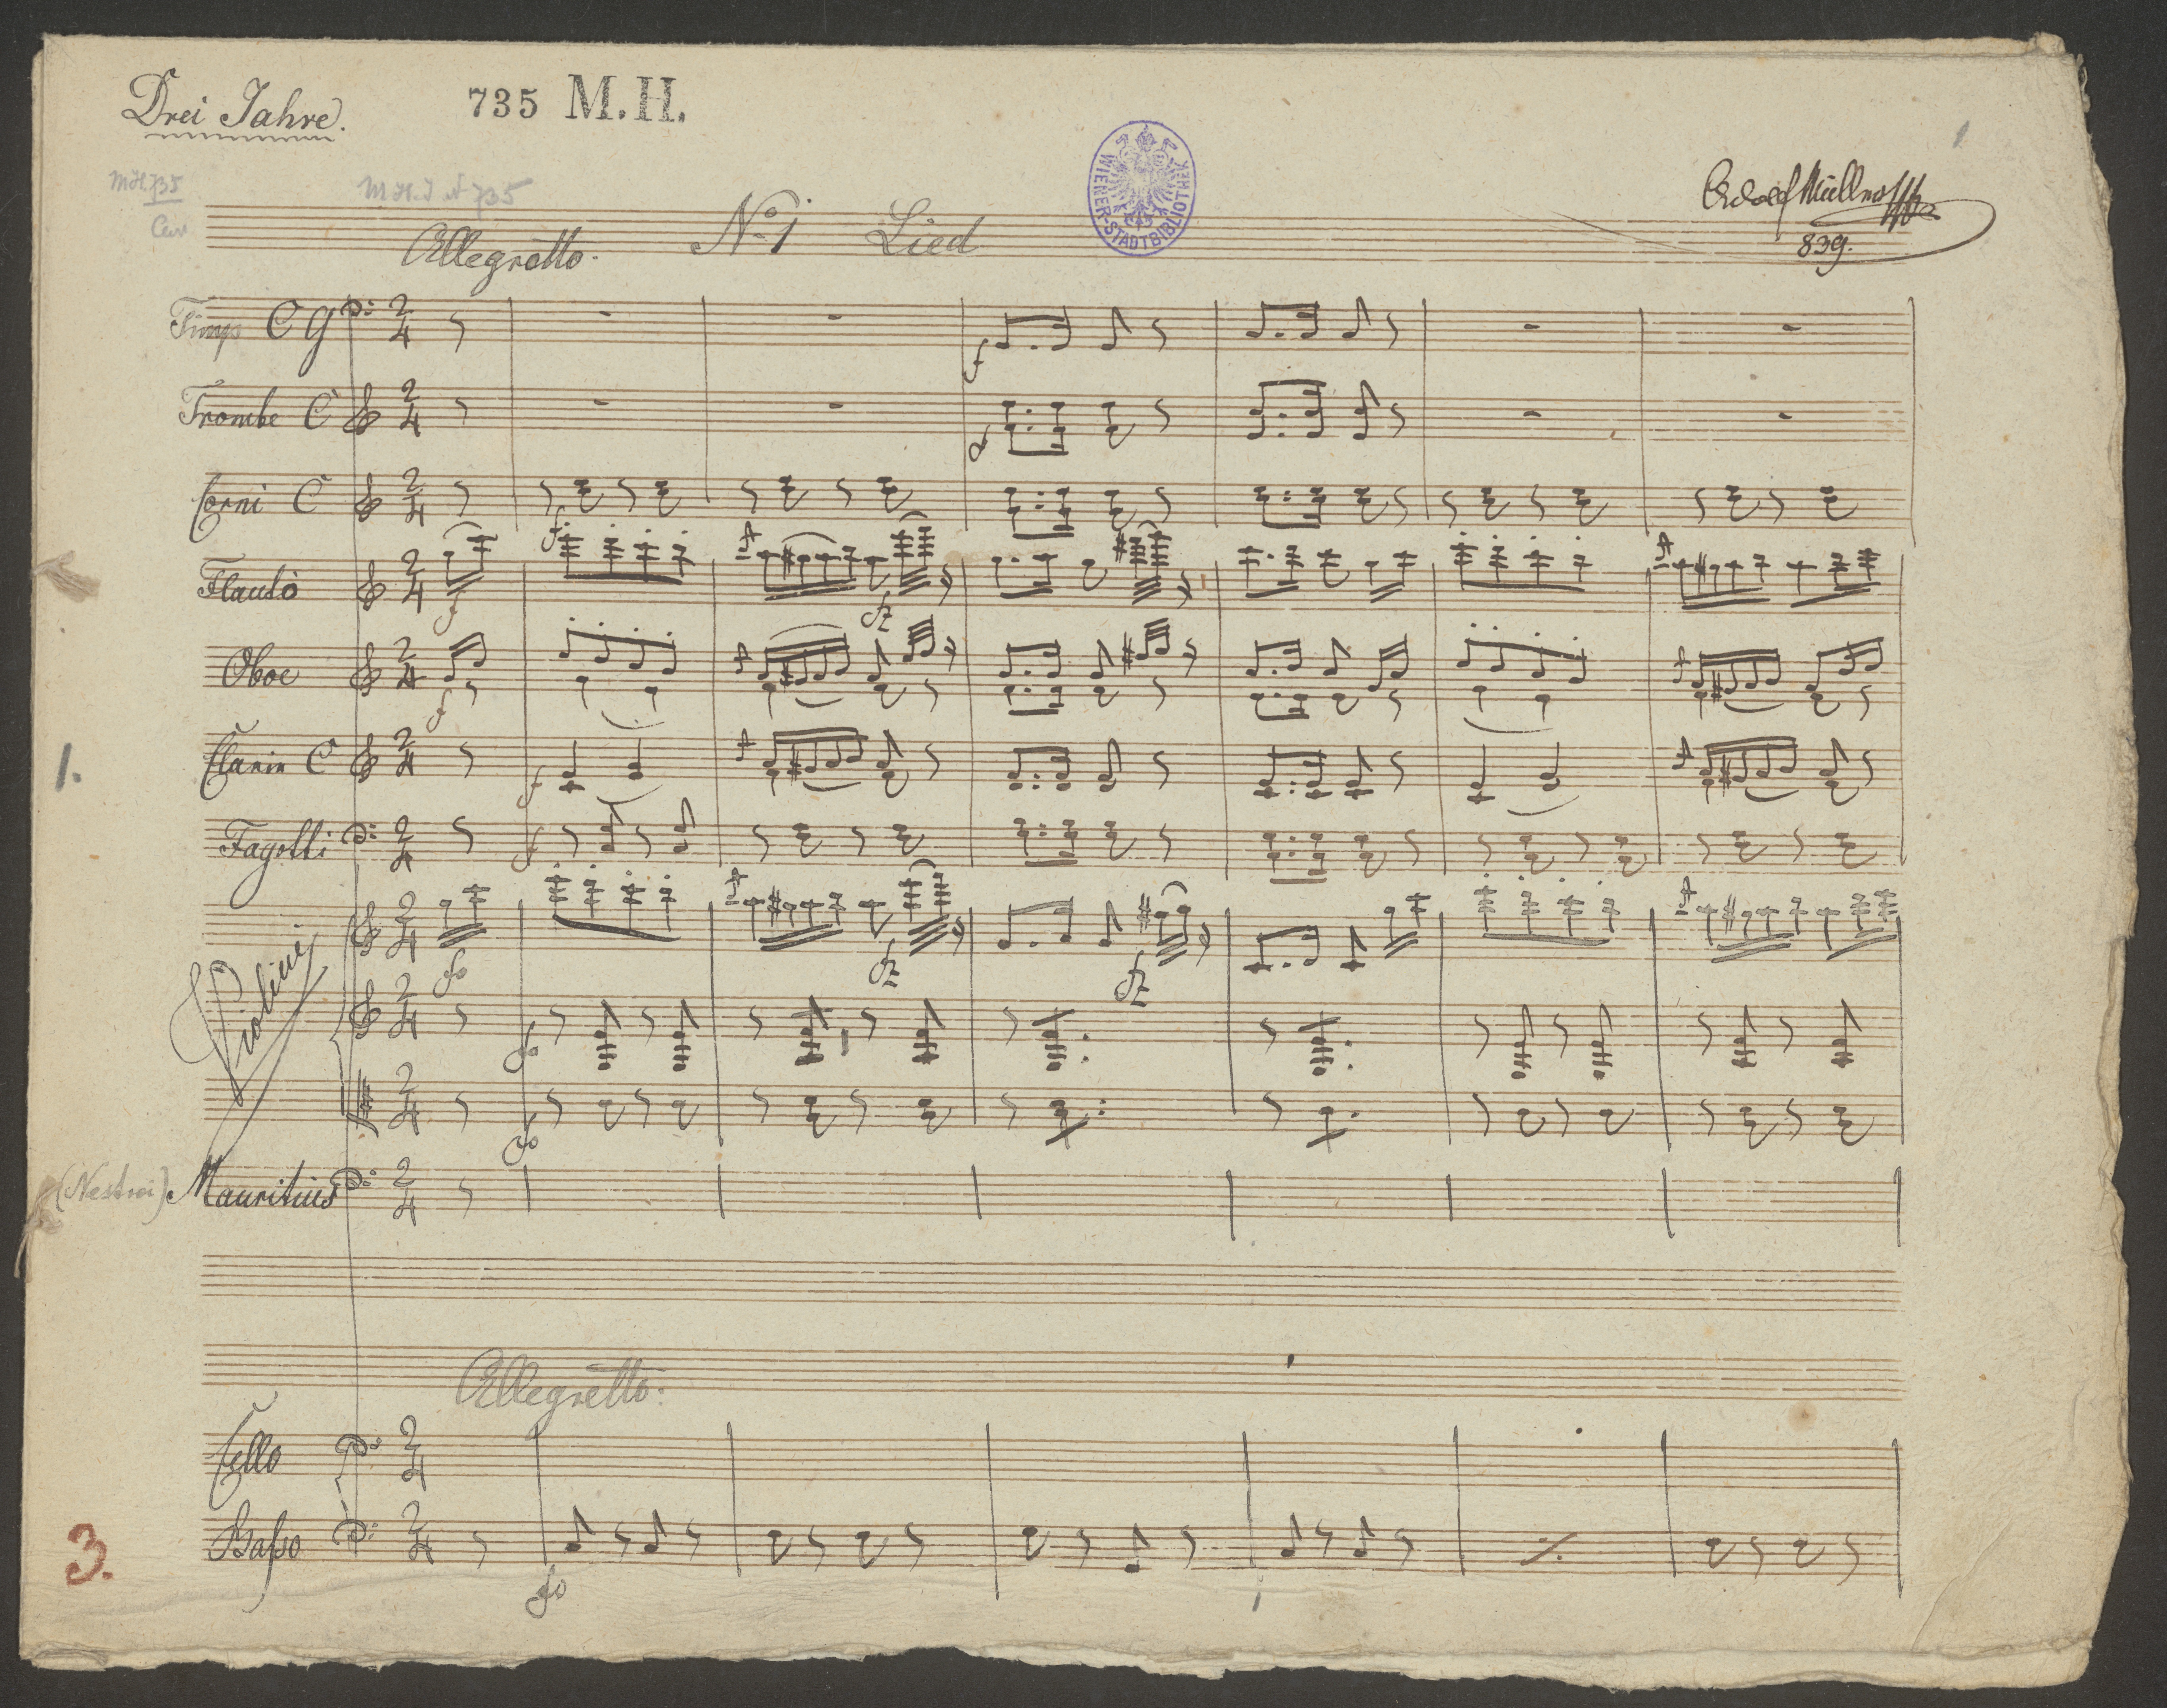 Drei Jahre.
735 M.H.
WIENER-STADTBIBLIOTHEK
1
M.H. 735
M.H.I. N 735
Adolf Müller
839.
Allegretto.
No. 1 Lied
Timp C G
Trombe C
Corni C
Flauto
Oboe
1.
Clarin C
Fagotti
Violini
(Nestroi) Mauritius
Allegretto.
Cello
3.
Basso